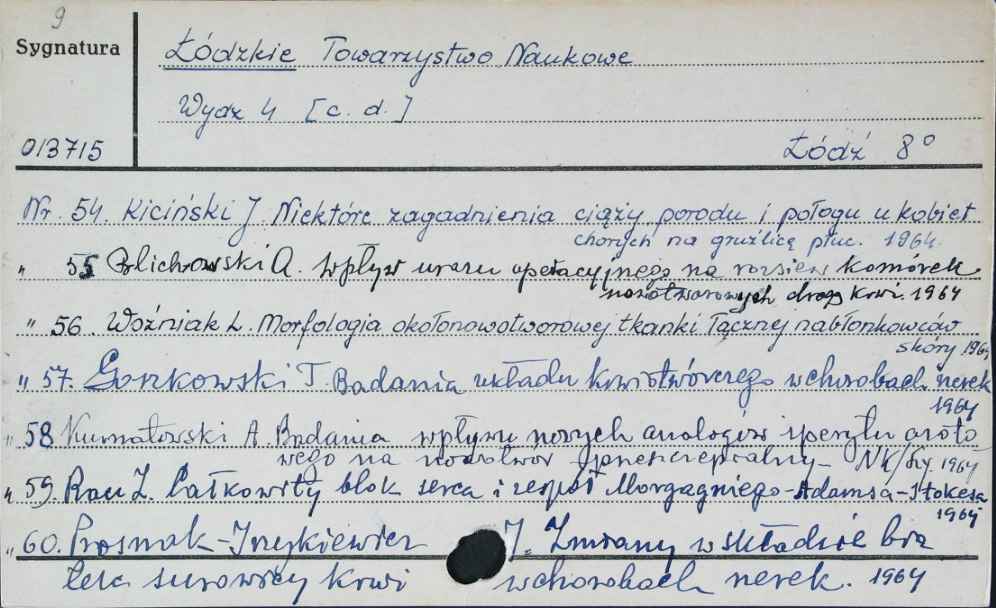 9
Sygnatura
Łódzkie Towarzystwo Naukowe
Wydz 4 [c. d.]
013715
Łódź 8°
Nr. 54. Kiciński J. Niektóre zagadnienia ciąży porodu i połogu u kobiet
chorych na gruźlicę płuc. 1964.
" 55 A. Wpływ urazu operacyjnego na rozsiew komórek
nowotworowych drogą krwi. 1964
" 56. Woźniak L. Morfologia okołonowotworowej tkanki łącznej nabłonkowców
skóry 1964
" 57. Goszkowski T. Badania układu krwiotwórczego w chorobach nerek
1964
" 58 A. Badania wpływu nowych analogów iperytu azoto-
wego na nowotwór przeszczepialny - 1964
" 59. Rau Z. Całkowity blok serca i zespół Morgagniego-Adamsa-Stokesa
1964
" 60. J. Zmiany w składzie bia
łek surowicy krwi w chorobach nerek. 1964